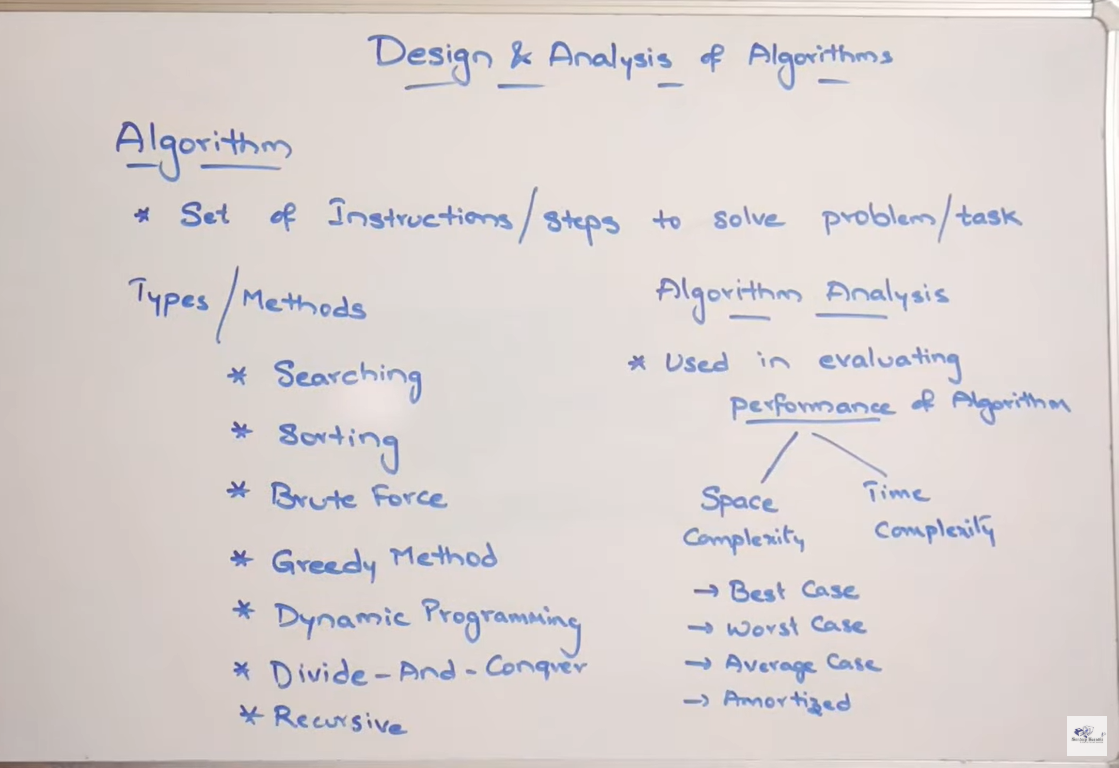 Design & Analysis of Algorithms
Algorithm
* Set of Instructions/steps to solve problem/task
Types/Methods
* Searching
* Sorting
* Brute Force
* Greedy Method
* Dynamic Programming
* Divide-And-Conquer
* Recursive
Algorithm Analysis
* Used in evaluating
performance of Algorithm
Space
Complexity
Time
Complexity
→ Best Case
→ Worst Case
→ Average Case
→ Amortized